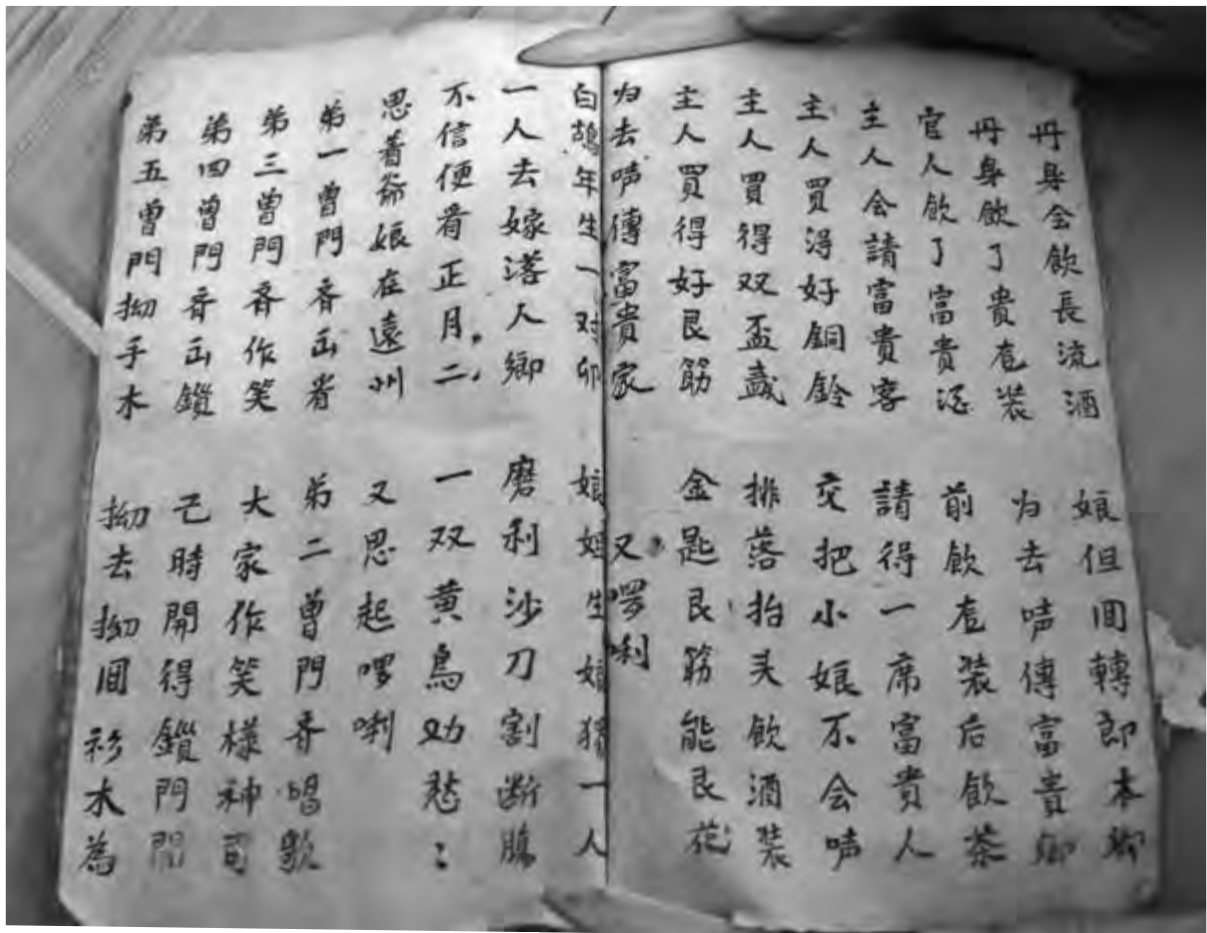 丹身会飲長流酒 娘但囬轉郎本鄉
丹身飲了貴花装 为去哼傳富貴鄉
官人飲了富貴酒 前飲花装后飲茶
主人会請富貴客 請得一席富貴人
主人買得好銅鈴 交把小娘不会哼
主人買得双盃盞 排落抬头飲酒装
主人買得好艮筯 金匙艮筯能艮花
为去哼傳富貴家 又啰唎
白鴣年生一对卵 娘姐生娘獨一人
一人去嫁落人鄉 磨利沙刀割断腸
不信便看正月二 一双黄鳥効愁〻
思着爺娘在遠州 又思起啰唎
弟一曾門斉出看 弟二曾門斉唱歌
弟三曾門斉作笑 大家作笑様神司
弟四曾門斉出鎖 己時開得鎖門開
弟五曾門拗手木 拗去拗囬衫木為